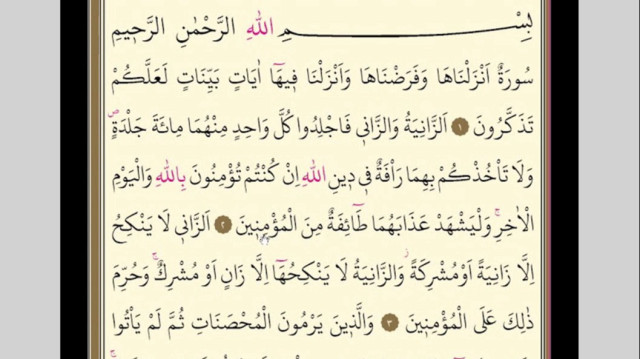 بِسْمِ اللهِ الرَّحْمٰنِ الرَّحِيمِ
سُورَةٌ اَنْزَلْنَاهَا وَفَرَضْنَاهَا وَاَنْزَلْنَا فِيهَٓا اٰيَاتٍ بَيِّنَاتٍ لَعَلَّكُمْ
تَذَكَّرُونَ ١ اَلزَّانِيَةُ وَالزَّانٖي فَاجْلِدُوا كُلَّ وَاحِدٍ مِنْهُمَا مِائَةَ جَلْدَةٍۖ
وَلَا تَأْخُذْكُمْ بِهِمَا رَأْفَةٌ فٖي دٖينِ اللهِ اِنْ كُنْتُمْ تُؤْمِنُونَ بِاللهِ وَالْيَوْمِ
الْاٰخِرِۚ وَلْيَشْهَدْ عَذَابَهُمَا طَٓائِفَةٌ مِنَ الْمُؤْمِنٖينَ ٢ اَلزَّانٖي لَا يَنْكِحُ
اِلَّا زَانِيَةً اَوْ مُشْرِكَةًؗ وَالزَّانِيَةُ لَا يَنْكِحُهَٓا اِلَّا زَانٍ اَوْ مُشْرِكٌۚ وَحُرِّمَ
ذٰلِكَ عَلَى الْمُؤْمِنٖينَ ٣ وَالَّذٖينَ يَرْمُونَ الْمُحْصَنَاتِ ثُمَّ لَمْ يَأْتُوا